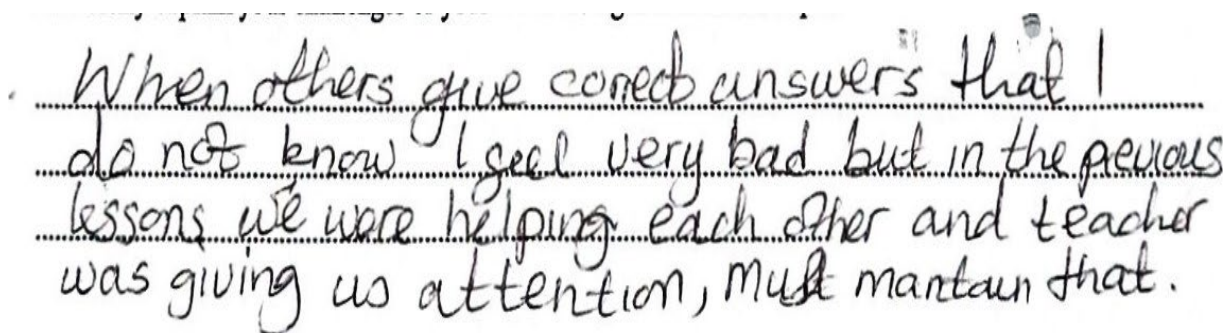 When others give correct answers that I
do not know I geel very bad but in the pevious
lessons we were helping each other and teacher
was giving us attention, must mantain that.